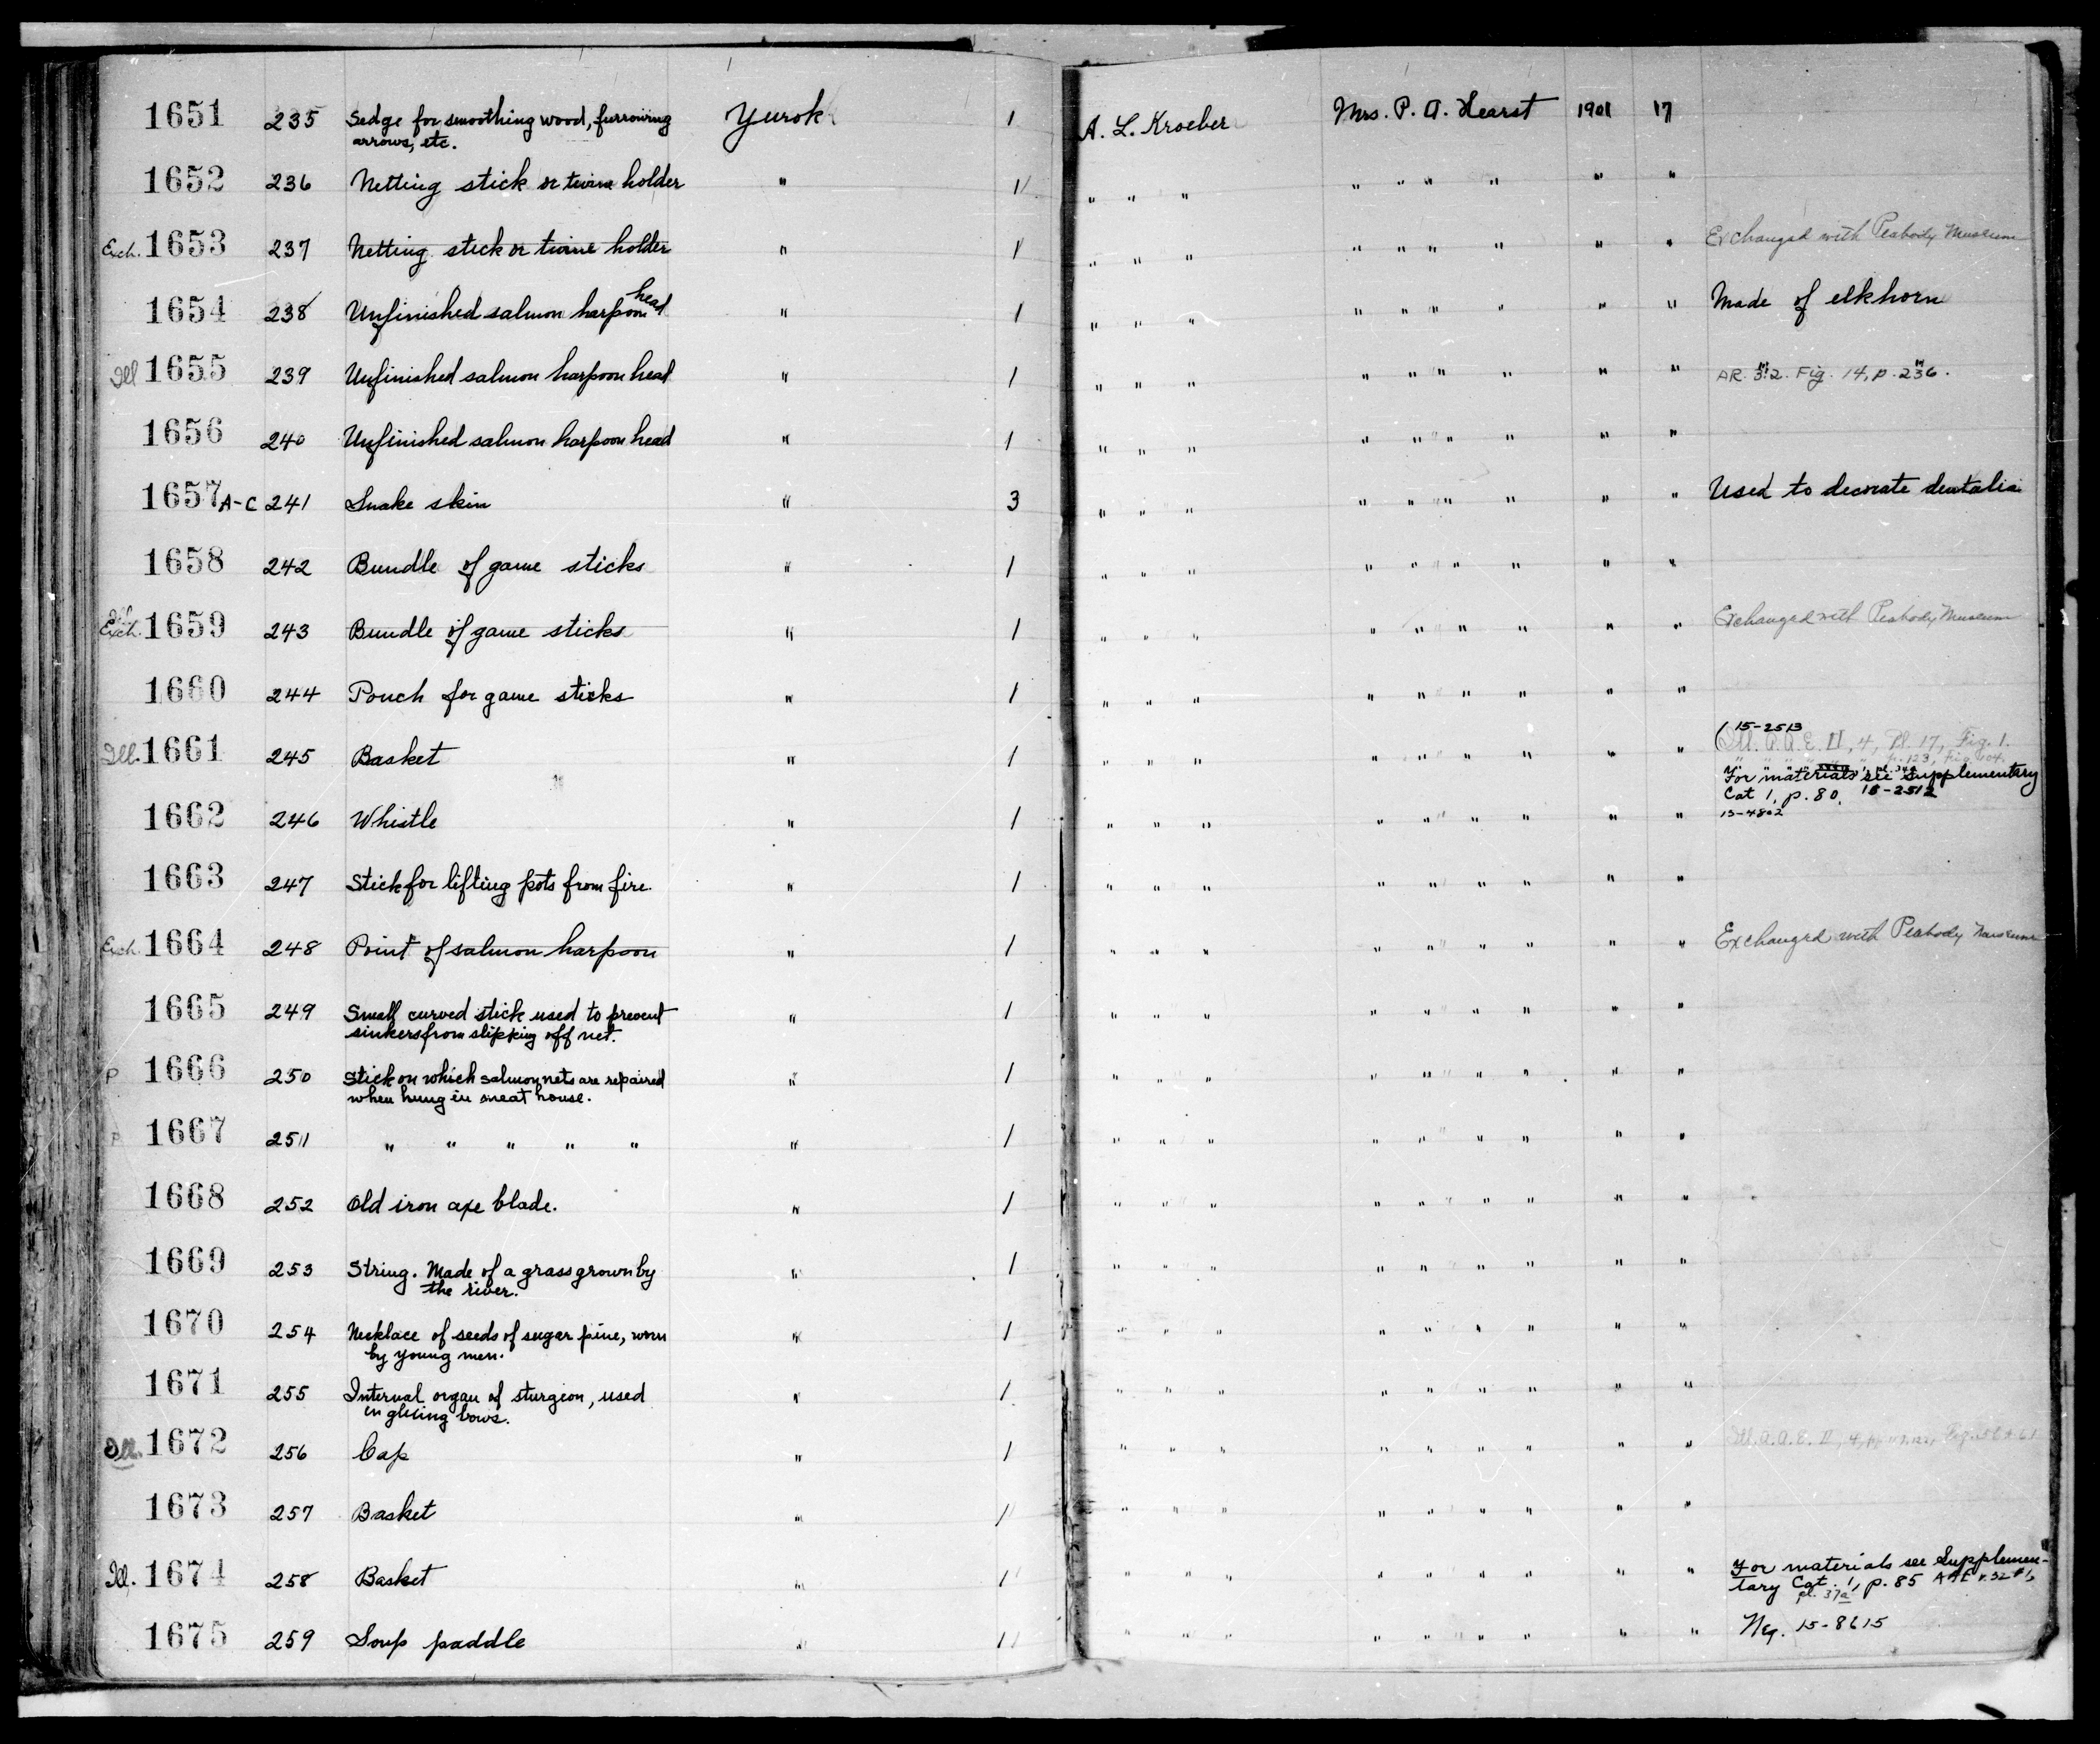 1651 235 Sedge for smoothing wood, furrowing Yurok 1 A. L. Kroeber Mrs. P. A. Hearst 1901 17
arrows, etc.
1652 236 Netting stick or twine holder " 1 " " " " " " " " "
Exch. 1653 237 Netting stick or twine holder " 1 " " " " " " " " " Exchanged with Peabody Museum
1654 238 Unfinished salmon harpoon head " 1 " " " " " " " " " Made of elkhorn
Ill 1655 239 Unfinished salmon harpoon head " 1 " " " " " " " " " AR. 3:2. Fig. 14, p. 236.
1656 240 Unfinished salmon harpoon head " 1 " " " " " " " " "
1657 A-C 241 Snake skin " 3 " " " " " " " " " Used to decorate dentalia
1658 242 Bundle of game sticks " 1 " " " " " " " " "
Ill
Exch. 1659 243 Bundle of game sticks " 1 " " " " " " " " " Exchanged with Peabody Museum
1660 244 Pouch for game sticks " 1 " " " " " " " " "
(15-2513
Ill. 1661 245 Basket " 1 " " " " " " " " " Ill. A.A.E. II, 4, Pl. 17, Fig. 1.
For materials see Supplementary
Cat 1, p. 80. 15-2512
1662 246 Whistle " 1 " " " " " " " " " 15-4802
1663 247 Stick for lifting pots from fire. " 1 " " " " " " " " "
Exch. 1664 248 Point of salmon harpoon " 1 " " " " " " " " " Exchanged with Peabody Museum
1665 249 Small curved stick used to prevent " 1 " " " " " " " " "
sinkers from slipping off net.
P 1666 250 Stick on which salmon nets are repaired " 1 " " " " " " " " "
when hung in sweat house.
P 1667 251 " " " " " " 1 " " " " " " " " "
1668 252 Old iron axe blade. " 1 " " " " " " " " "
1669 253 String. Made of a grass grown by " 1 " " " " " " " " "
the river.
1670 254 Necklace of seeds of sugar pine, worn " 1 " " " " " " " " "
by young men.
1671 255 Internal organ of sturgeon, used " 1 " " " " " " " " "
in glueing bows.
Ill. 1672 256 Cap " 1 " " " " " " " " " Ill. A.A.E. II, 4,
1673 257 Basket " 1 " " " " " " " " "
Ill. 1674 258 Basket " 1 " " " " " " " " " For materials see Supplemen-
tary Cat. 1, p. 85
pl. 37a
1675 259 Soup paddle " 1 " " " " " " " " " Neg. 15-8615